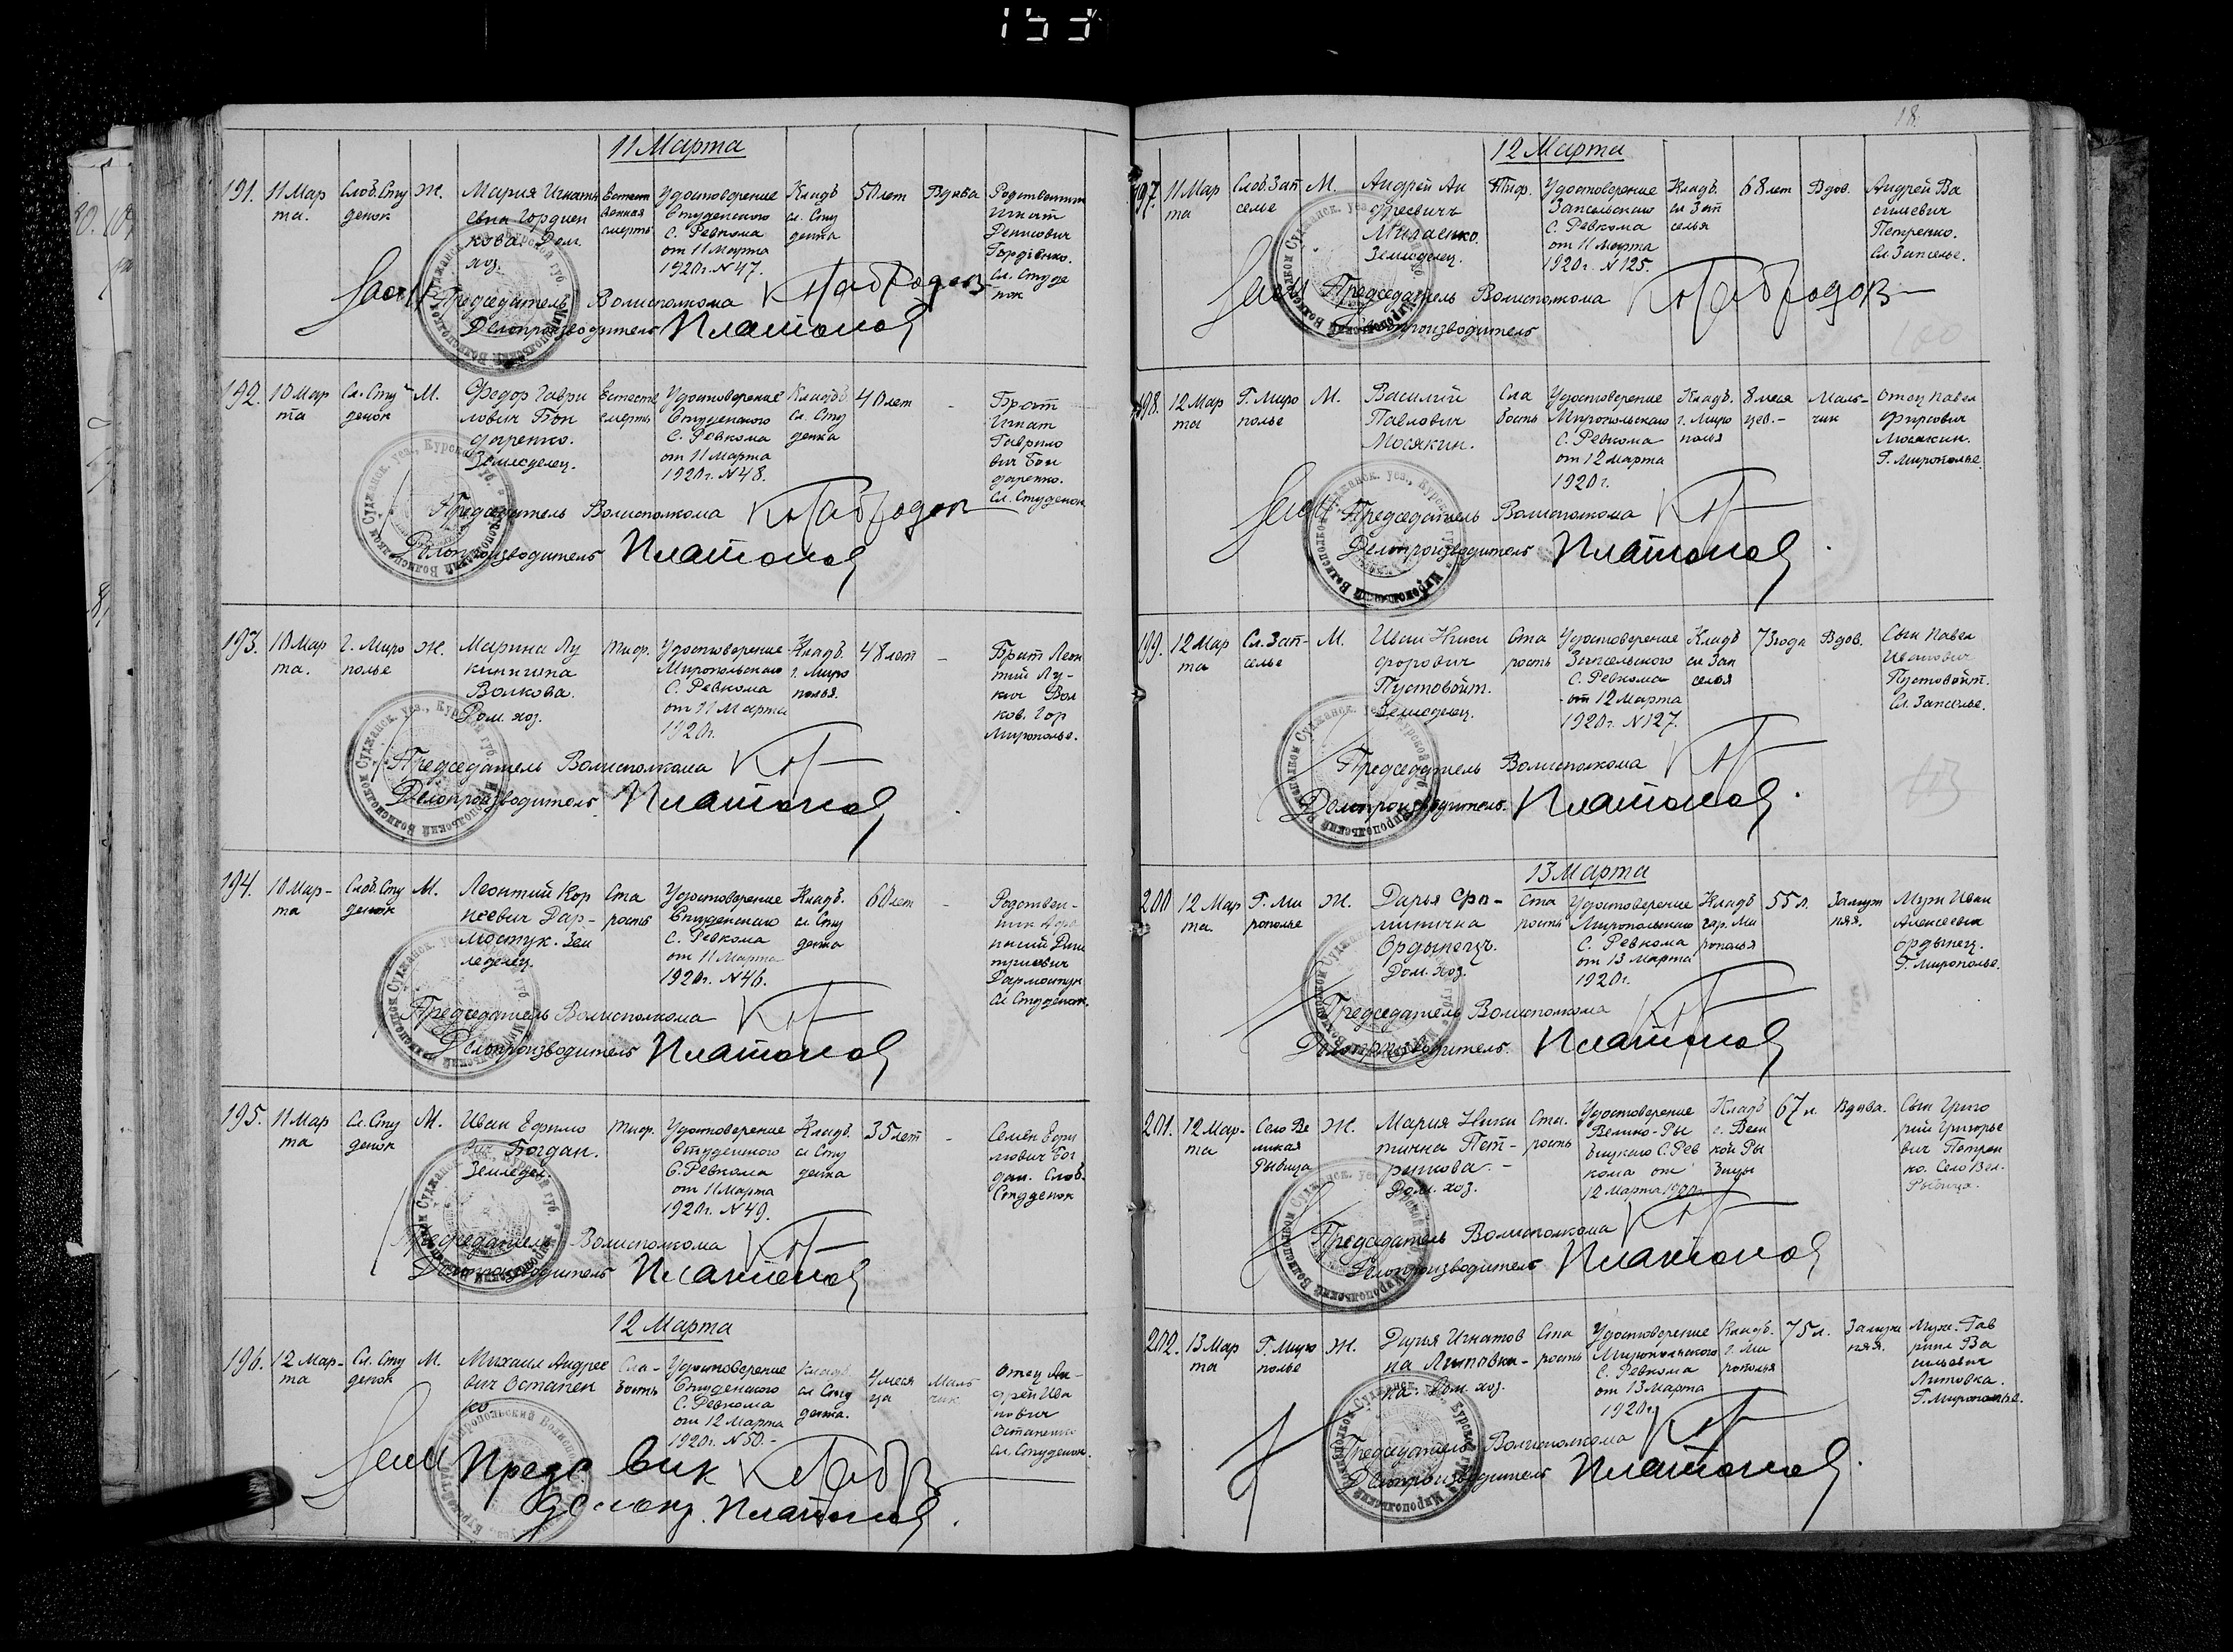 18.
11 Марта
191. 11 Мар
та.
Слов. Сту
денок
Ж.
Мария Игнать
евна Гордиен
кова. Дом.
хоз.
Естест
венная
смерть
Удостоверение
Студенского
С. Ревкома
от 11 Марта
1920г. N 47.
Кладб
сл. Сту
денка
50 лет
Вдова
Родственник
Игнат
Денисович
Гордиенко.
Сл. Студе
нок
Председатель Волисполкома
Делопроизводитель Платонов
192. 10 Мар
та
Сл. Сту
денок
М.
Федор Гаври
лович Бон
даренко.
Земледелец.
Естеств
смерть
Удостоверение
Студенского
С. Ревкома
от 11 Марта
1920г. N 48.
Кладб
сл. Сту
денка
40 лет
-
Брат
Игнат
Гаврило
вич Бон
даренко.
Сл. Студенок
Председатель Волисполкома
Делопроизводитель Платонов
193. 10 Мар
та.
г. Миро
полье
Ж.
Марина Лу
кинична
Волкова.
Дом. хоз.
Тиф.
Удостоверение
Миропольского
С. Ревкома
от 11 Марта
1920г.
Кладб.
г. Миро
полья.
48 лет
-
Брат Леон
тий Лу-
кич Вол
ков. Гор
Мирополье.
Председатель Волисполкома
Делопроизводитель Платонов
194. 10 Мар-
та
Слов. Сту
денок
М.
Леонтий Кор
неевич Дар-
мостук. Зем
леделец.
Ста
рость
Удостоверение
Студенского
С. Ревкома
от 11 Марта
1920г. N 46.
Кладб.
сл. Сту
денка
60 лет
-
Родствен-
ник
Дми
триевич
Дармостук
Сл Студенок.
Председатель Волисполкома
Делопроизводитель Платонов
195. 11 Мар
та
Сл. Сту
денок
М.
Иван Ефимо
вич Богдан.
Земледел.
Тиф.
Удостоверение
Студенского
С. Ревкома
от 11 Марта
1920г. N 49.
Кладб.
сл Сту
денка
35 лет
-
Семен Ефи
мович Бог
дан. Слов.
Студенок
Председатель Волисполкома
Делопроизводитель Платонов
12 Марта
196. 12 Мар-
та
Сл. Сту
денок
М.
Михаил Андрее
вич Остапен
ко
Сла-
бость
Удостоверение
Студенского
С. Ревкома
от 12 Марта
1920г. N 50.-
Кладб
сл Сту
денка.
4 меся
ца
Маль
чик
Отец Ан-
дрей Ива
нович
Остапенко
Сл. Студенок.
Предс Вик
делопр. Платонов
12 Марта
197. 11 Мар
та
Слов. Зап
селье
М.
Андрей Ан
дреевич
Милаенко.
Земледелец.
Тиф.
Удостоверение
Запсельского
С. Ревкома
от 11 Марта
1920г. N 125.
Кладб.
сл Зап
селья
68 лет
Вдов.
Андрей Ва
сильевич
Петренко.
Сл. Запселье.
Председатель Волисполкома
Делопроизводитель
198. 12 Мар
та
Г. Миро
полье
М.
Василий
Павлович
Мосякин.
Сла
бость
Удостоверение
Миропольского
С. Ревкома
от 12 Марта
1920г.
Кладб.
г. Миро
полья
8 меся
цев.-
Маль-
чик
Отец Павел
Фирсович
Мосякин.
Г. Мирополье.
Председатель Волисполкома
Делопроизводитель Платонов
199. 12 Мар
та
Сл. Зап-
селье
М.
Иван Ники
форович
Пустовойт.
Земледелец.
Ста
рость
Удостоверение
Запсельского
С. Ревкома
от 12 Марта
1920г. N 127.
Кладб
сл Зап
селья
73 года
Вдов.
Сын Павел
Иванович
Пустовойт.
Сл. Запселье.
Председатель Волисполкома
Делопроизводитель. Платонов
13 Марта
200 12 Мар
та.
Г. Ми
рополье
Ж.
Дарья Фи-
липична
Ордынецъ.
Дом. хоз.
Ста
рость
Удостоверение
Миропольского
С. Ревкома
от 13 Марта
1920г.
Кладб
гор. Ми
рополья
55 л.
Замуж
няя.
Муж Иван
Алексеевич
Ордынец.
Г. Мирополье.
Председатель Волисполкома
Делопроизводитель. Платонов
201. 12 Мар-
та
Село Ве
ликая
Рыбица
Ж.
Мария Ники
тична Пет-
ренкова.-
Дом. хоз.
Ста.
рость
Удостоверение
Велико-Ры
бицкого С. Рев
кома от
12 Марта 1920г.
Кладб
с. Вели
кой Ры
бицы
67 л.
Вдова.
Сын Григо
рий Григорье
вич Петрен
ко. Село Вел.
Рыбица.
Председатель Волисполкома
Делопроизводитель Платонов
202. 13 Мар
та
Г. Миро
полье
Ж.
Дарья Игнатов
на Литовки-
на. Дом. хоз.
Ста
рость
Удостоверение
Миропольского
С. Ревкома
от 13 Марта
1920г.
Кладб.
г. Ми
рополья
75 л.
Замуж
няя.
Муж. Гав
риил Ва
сильевич
Литовка.
Г. Мирополье.
Председатель Волисполкома
Делопроизводитель Платонов